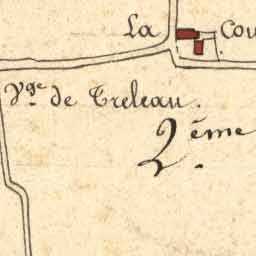 La Cou
Vge de Treleau.
2ème